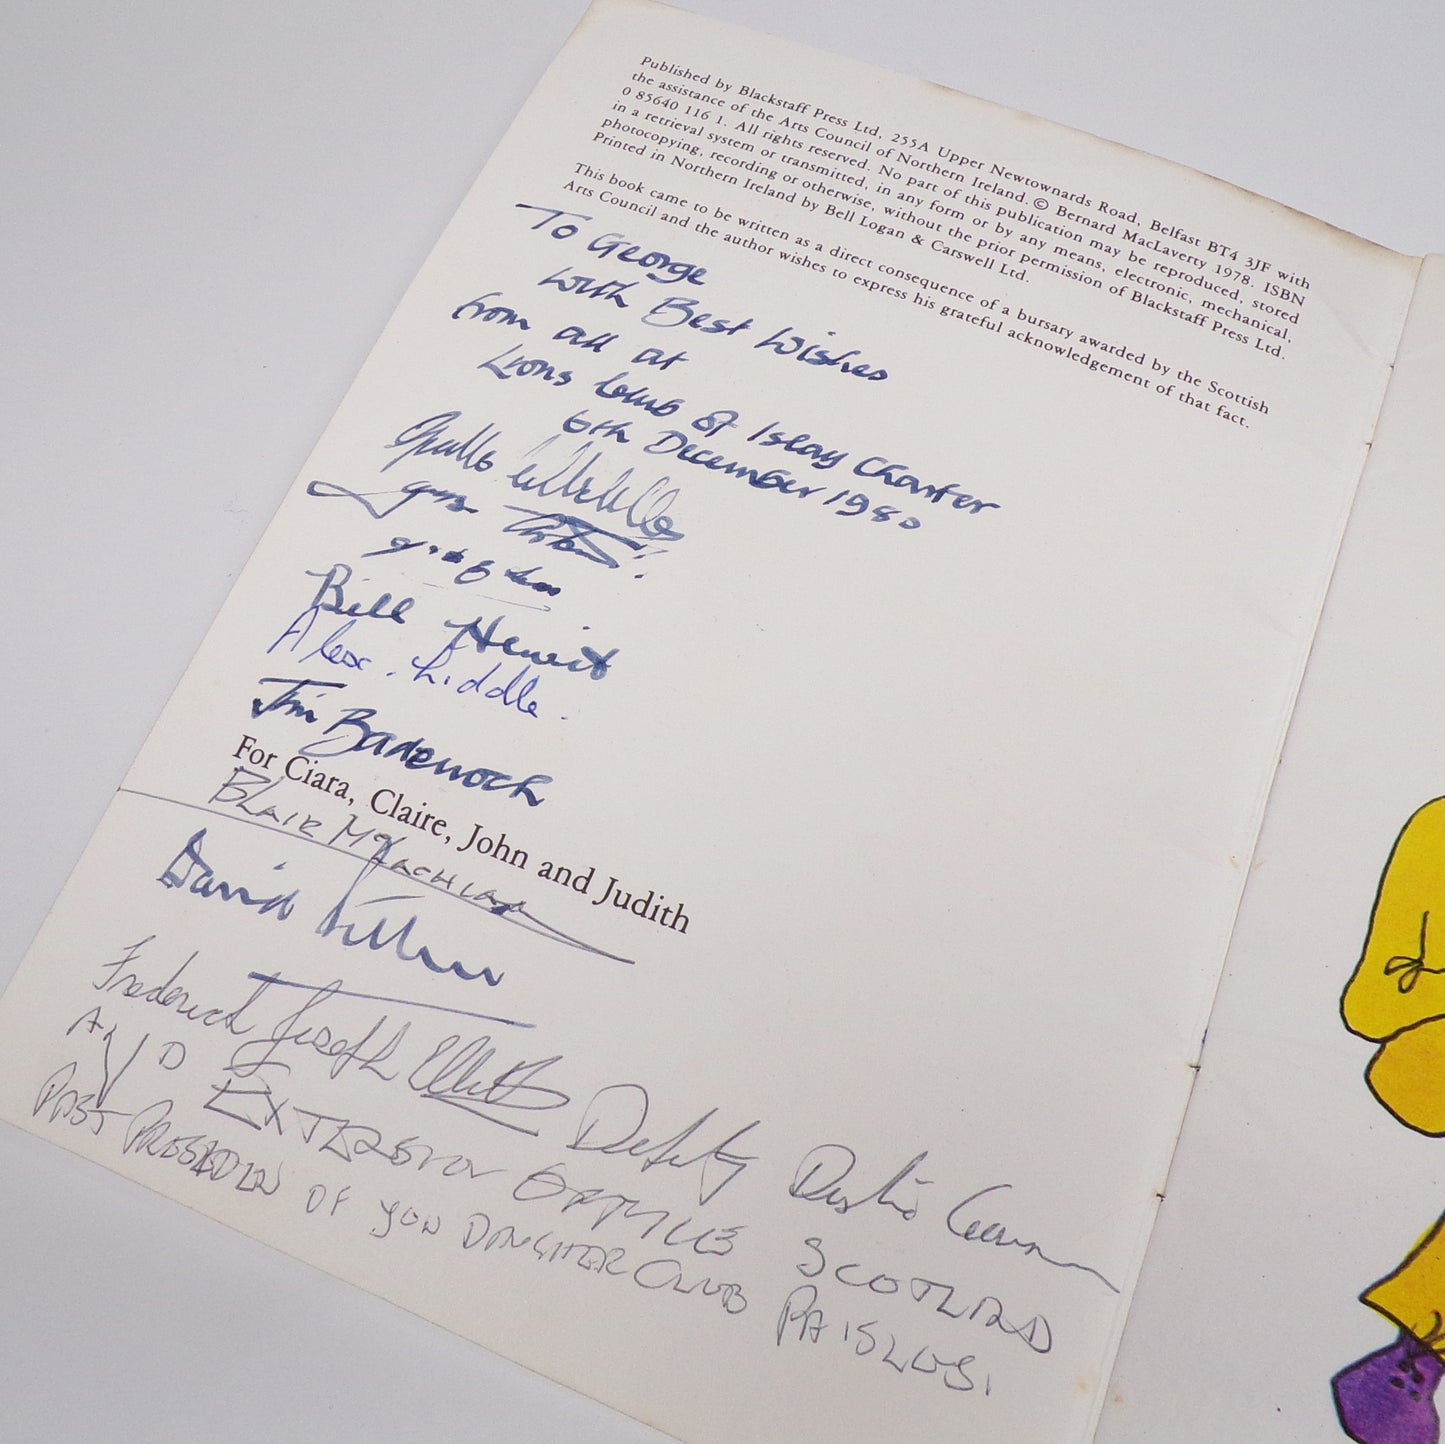 Published by Blackstaff Press Ltd, 255A Upper Newtownards Road, Belfast BT4 3JF with
the assistance of the Arts Council of Northern Ireland. © Bernard MacLaverty 1978. ISBN
0 85640 116 1. All rights reserved. No part of this publication may be reproduced, stored
in a retrieval system or transmitted, in any form or by any means, electronic, mechanical,
photocopying, recording or otherwise, without the prior permission of Blackstaff Press Ltd.
Printed in Northern Ireland by Bell Logan & Carswell Ltd.
This book came to be written as a direct consequence of a bursary awarded by the Scottish
Arts Council and the author wishes to express his grateful acknowledgement of that fact.
To George
with Best Wishes
from all at
Lions Club of Islay Charter
6th December 1980
Bill Hewit
Alex. Liddle.
Jim Badenoch
For Ciara, Claire, John and Judith
Blair McLachlan
David
Frederick Joseph Elliott Deputy District
AND
PAST PRESIDEN OF YOU DAUGHTER CLUB PAISLEY.
SCOTLAND